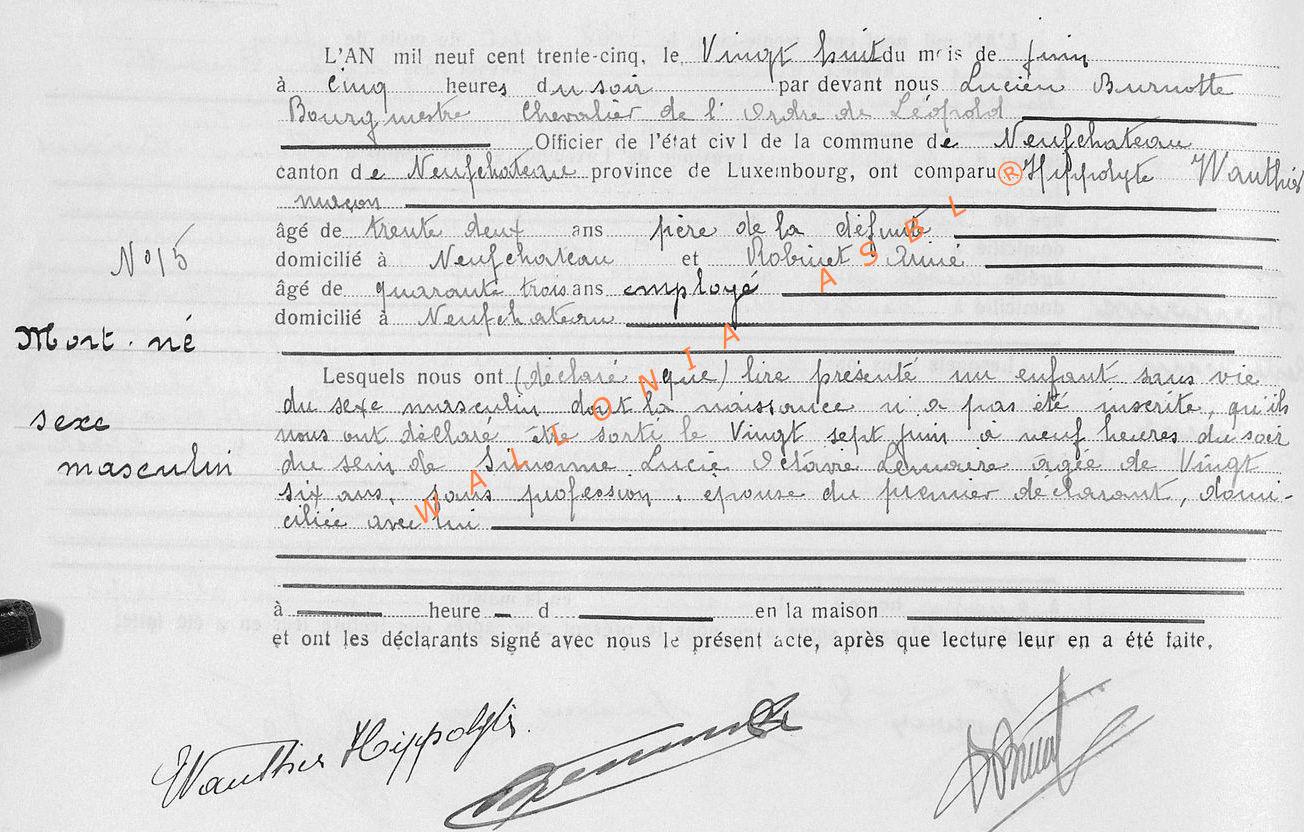 L'AN mil neuf cent trente-cinq, le Vingt huit du mois de juin
à cinq heures du soir par devant nous Lucien Burnotte
Bourgmestre Chevalier de l'Ordre de Léopold
Officier de l'état civil de la commune de Neufchateau
canton de Neufchateau province de Luxembourg, ont comparu Hippolyte Wauthier
maçon
âgé de trente deux ans père de la défunte
domicilié à Neufchateau et Robinet Aimé
âgé de quarante trois ans employé
domicilié à Neufchateau
N° 15
Mort-né
sexe
masculin
Lesquels nous ont (déclaré que) lire présenté un enfant sans vie
du sexe masculin dont la naissance n'a pas été inscrite, qu'ils
nous ont déclaré être sorti le Vingt sept juin à neuf heures du soir
du sein de Simonne Lucie Octavie Lemaire âgée de Vingt
six ans, sans profession, épouse du premier déclarant, domi-
ciliée avec lui
à heure d en la maison
et ont les déclarants signé avec nous le présent acte, après que lecture leur en a été faite.
Wauthier Hippolyte
WALLONIA ASBL ®